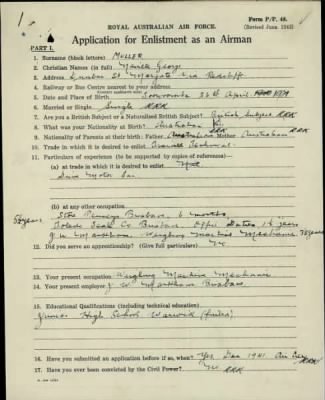 1
Form P/P. 48.
(Revised June, 1940)
ROYAL AUSTRALIAN AIR FORCE.
Application for Enlistment as an Airman
PART I.
1. Surname (block letters) MULLER
2. Christian Names (in full) George
3. Address St Margate Via Redcliffe
4. Railway or Bus Centre nearest to your
5. Date and Place of Birth Toowoomba 26th April
6. Married or Single Single RRK
7. Are you a British Subject or a Naturalised British Subject? British Subject RRK
8. What was your Nationality at Birth? Australian
9. Nationality of Parents at their birth: Father Australian Mother Australian RRK
10. Trade in which it is desired to enlist Technical
11. Particulars of experience (to be supported by copies of reference)—
(a) at trade in which it is desired to enlist
Motor
(b) at any other occupation
Brisbane 6 months
Toledo Scale Co Brisbane years
Markham Weighing Machine Mechanic years
12. Did you serve an apprenticeship? (Give full particulars) No
13. Your present occupation Weighing Machine Mechanic
14. Your present employer J W Markham Brisbane
15. Educational Qualifications (including technical education)
Junior High School Warwick (failed)
16. Have you submitted an application before if so, when? Yes Jan 1941 Air Crew RRK
17. Have you ever been convicted by the Civil Power? No RRK